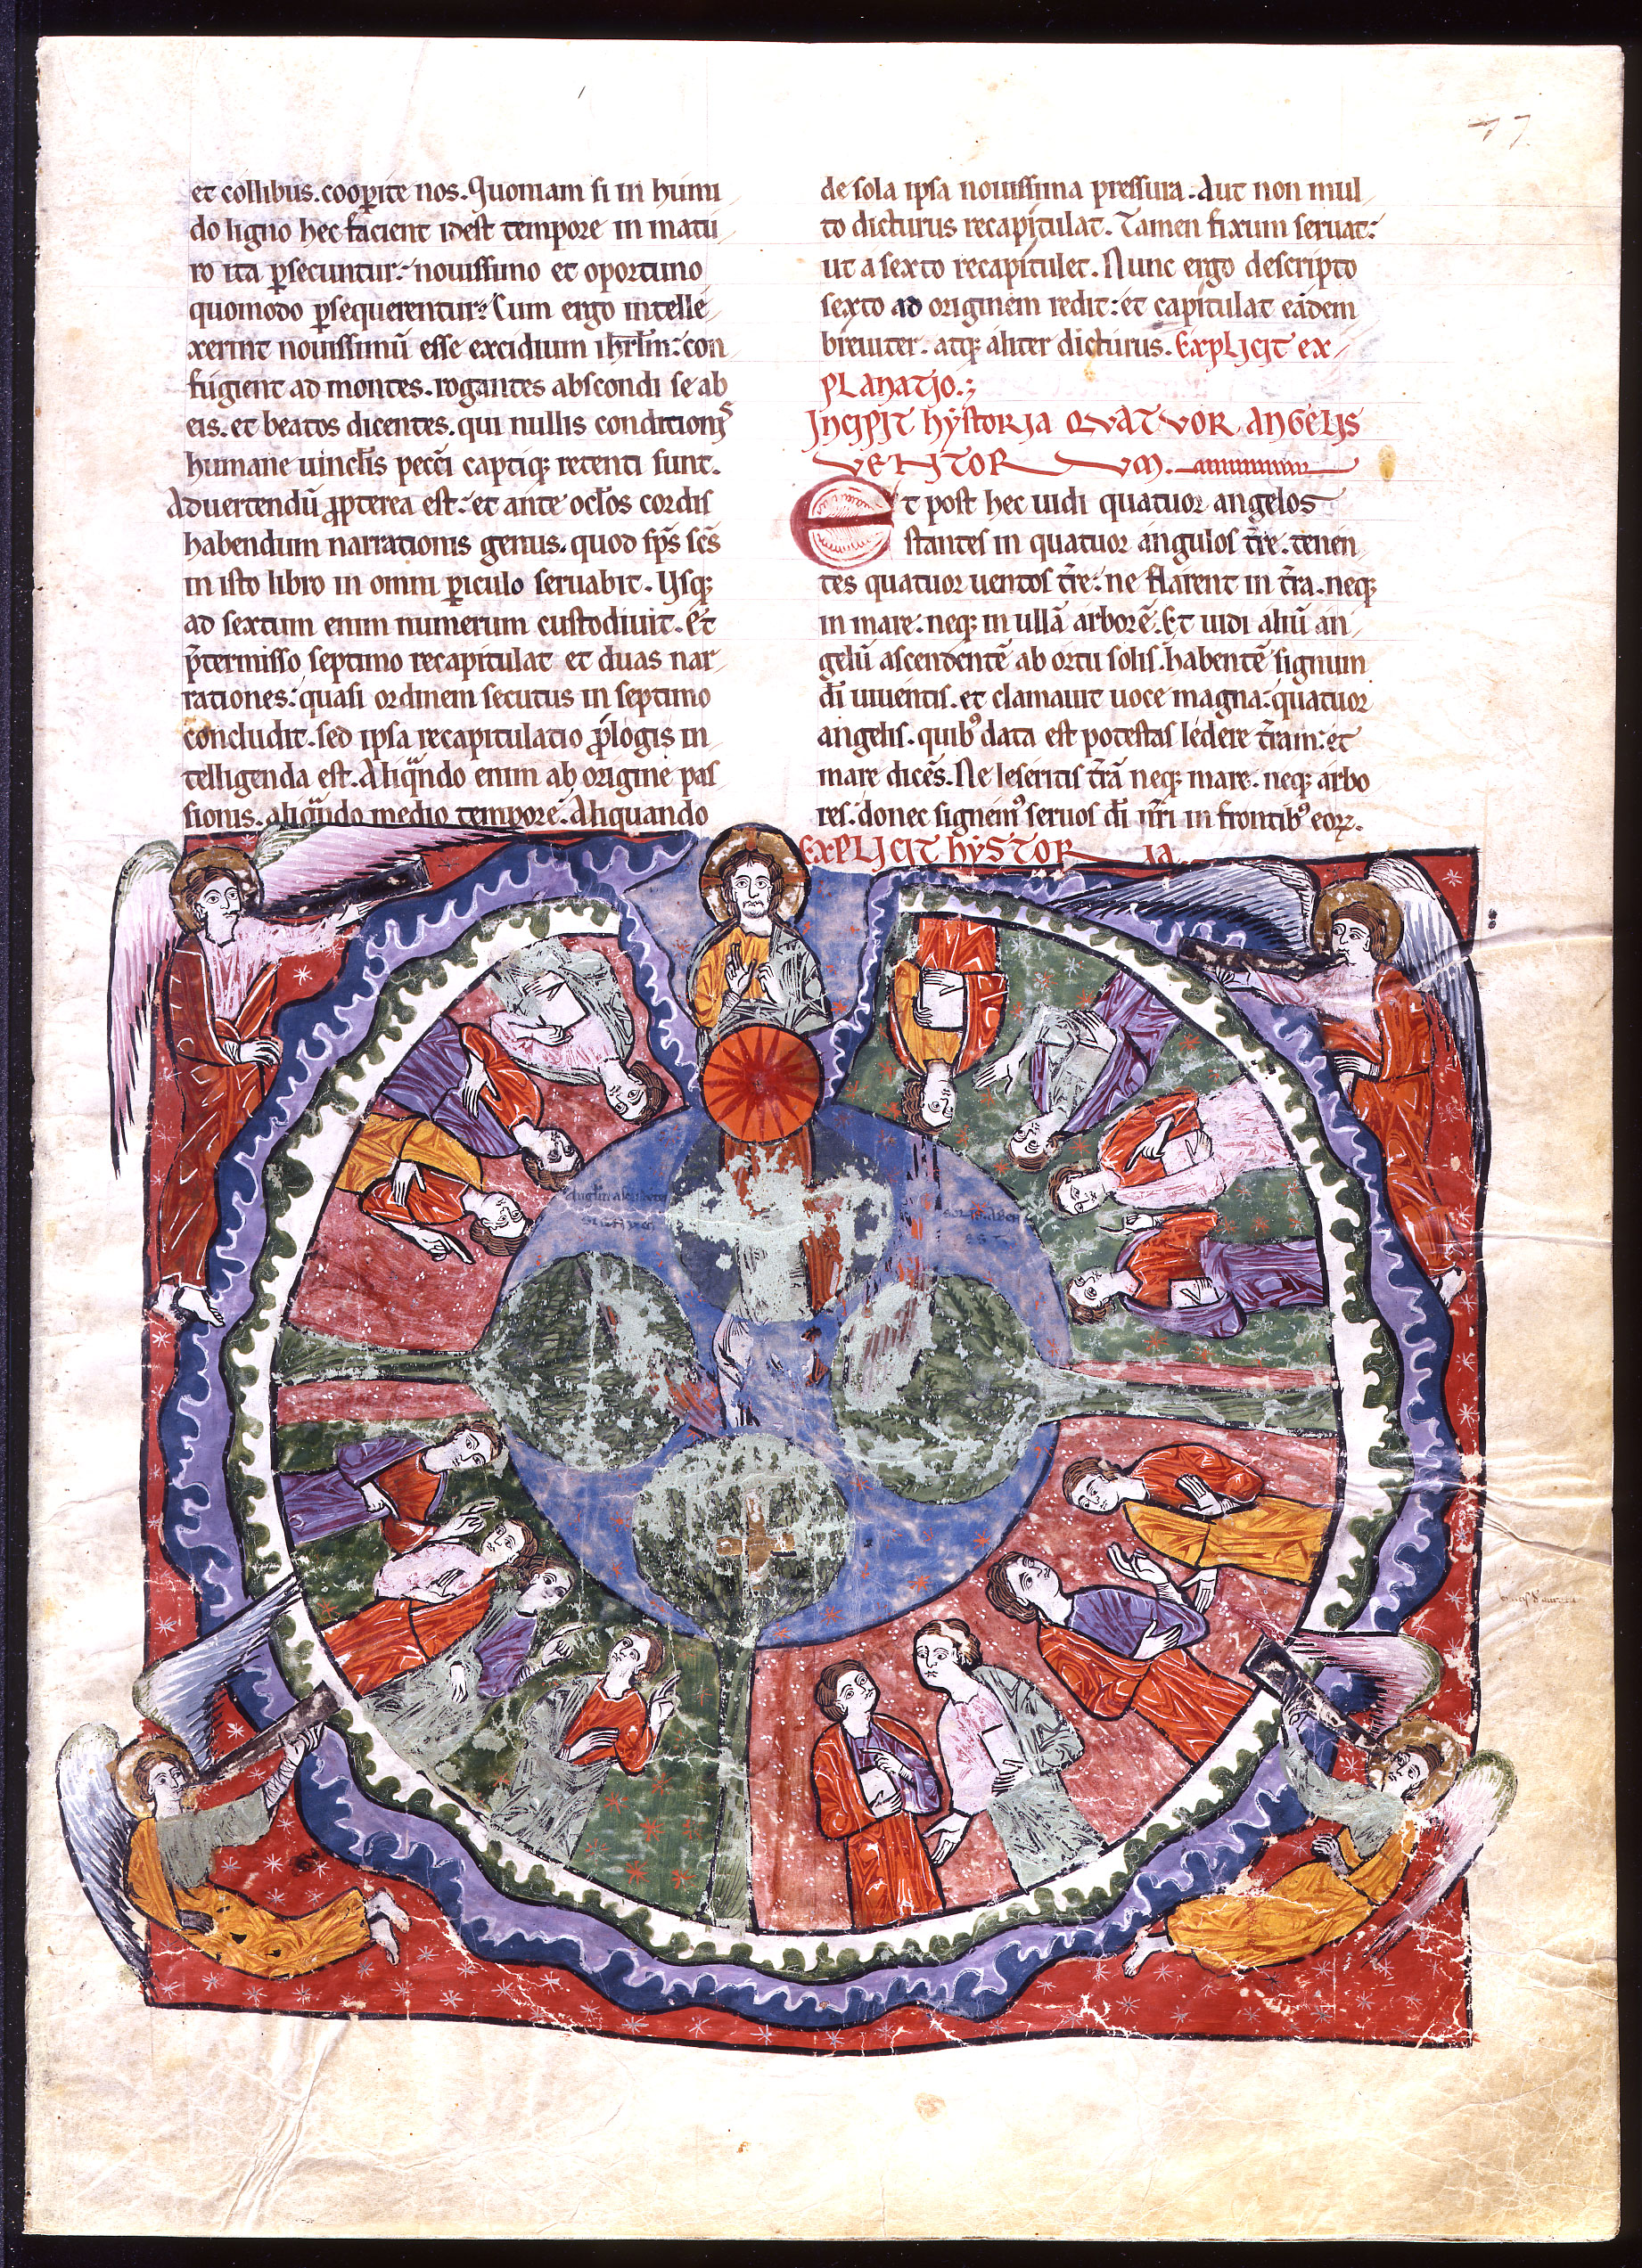 17
et collibus. cooꝑite nos. Quoniam si in humi
do ligno hec facient idest tempore in matu
ro ita ꝑsecuntur: nouissimo et oportuno
quomodo ꝑsequerentur? Cum ergo intelle
xerint nouissimū esse excidium ihrl̅m: con
fugient ad montes. rogantes abscondi se ab
eis. et beatos dicentes. qui nullis condition̅s
humane uincl̅is pecc̅i captiq; retenti sunt.
Aduertendū ꝓpterea est: et ante ocl̅os cordis
habendum narrationis genus. quod sp̅s sc̅s
in isto libro in omni ꝑiculo seruabit. Usq;
ad sextum enim numerum custodiuit. Et
p̅termisso septimo recapitulat et duas nar
rationes: quasi ordinem secutus in septimo
concludit. sed ipsa recapitulatio ꝓlogis in
telligenda est. Aliqn̅do enim ab origine pas
sionis. aliqn̅do medio tempore. Aliquando
de sola ipsa nouissima pressura. Aut non mul
to dicturus recapitulat. Tamen fixum seruat:
ut a sexto recapitulet. Nunc ergo descripto
sexto ad originem redit: et capitulat eadem
breuiter. atq; aliter dicturus. Explicit ex
planatio.;
Incipit hystoria quatuor angelis
ventorum.
Et post hec uidi quatuor angelos
stantes in quatuor angulos tr̅e. tenen
tes quatuor uentos tr̅e: ne flarent in tr̅a. neq;
in mare. neq; in ullā arborē. Et uidi aliū an
gelū ascendentē ab ortu solis. habentē signum
dī uiuentis. et clamauit uoce magna: quatuor
angelis. quibꝰ data est potestas ledere tr̅am: et
mare dicēs. Ne leseritis tr̅ā neq; mare. neq; arbo
res: donec signemꝰ seruos dī nr̅i in frontibꝰ eoꝝ.
Explicit hystoria.